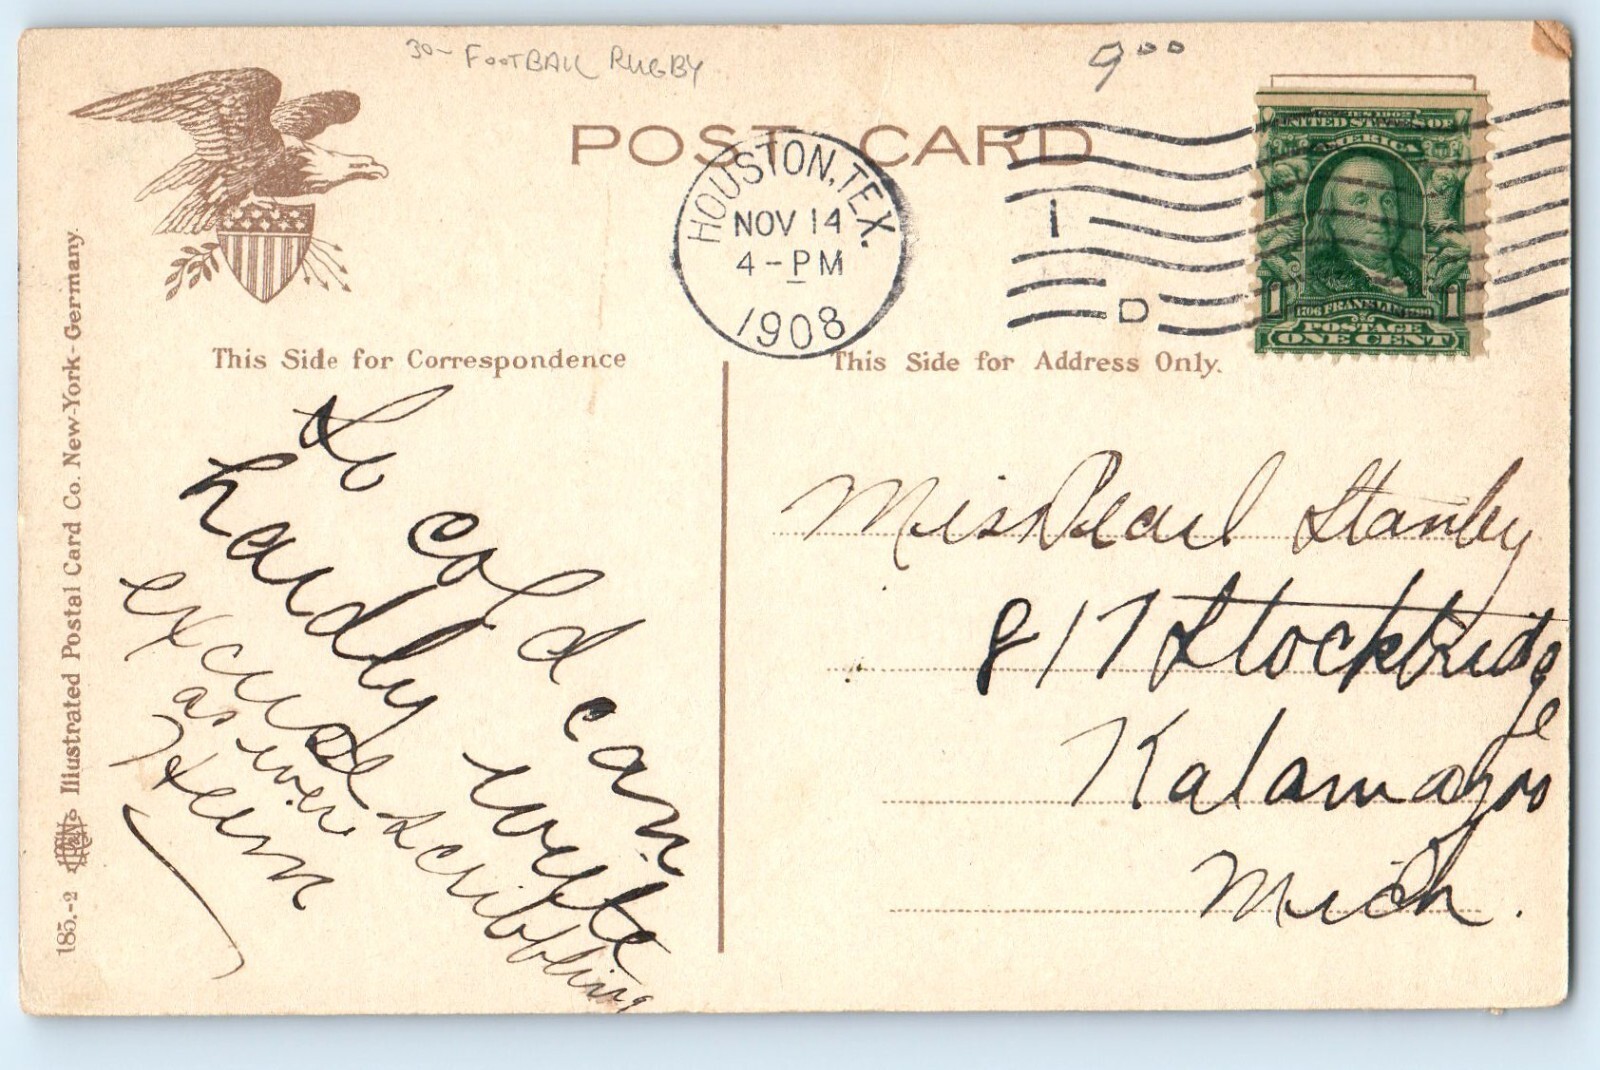 30- FOOTBALL RUGBY
9⁰⁰
POST CARD
HOUSTON, TEX.
NOV 14
4-PM
1908
1
D
SERIES 1902
UNITED STATES OF
AMERICA
1706 FRANKLIN 1790
POSTAGE
1 ONE CENT 1
Illustrated Postal Card Co. New-York-Germany.
185.-2
This Side for Correspondence
So cold can
hardly write
excuse scribbling
as iver
Hein
This Side for Address Only.
Miss Pearl Stanley
817 Stockbridge
Kalamazoo
Mich.